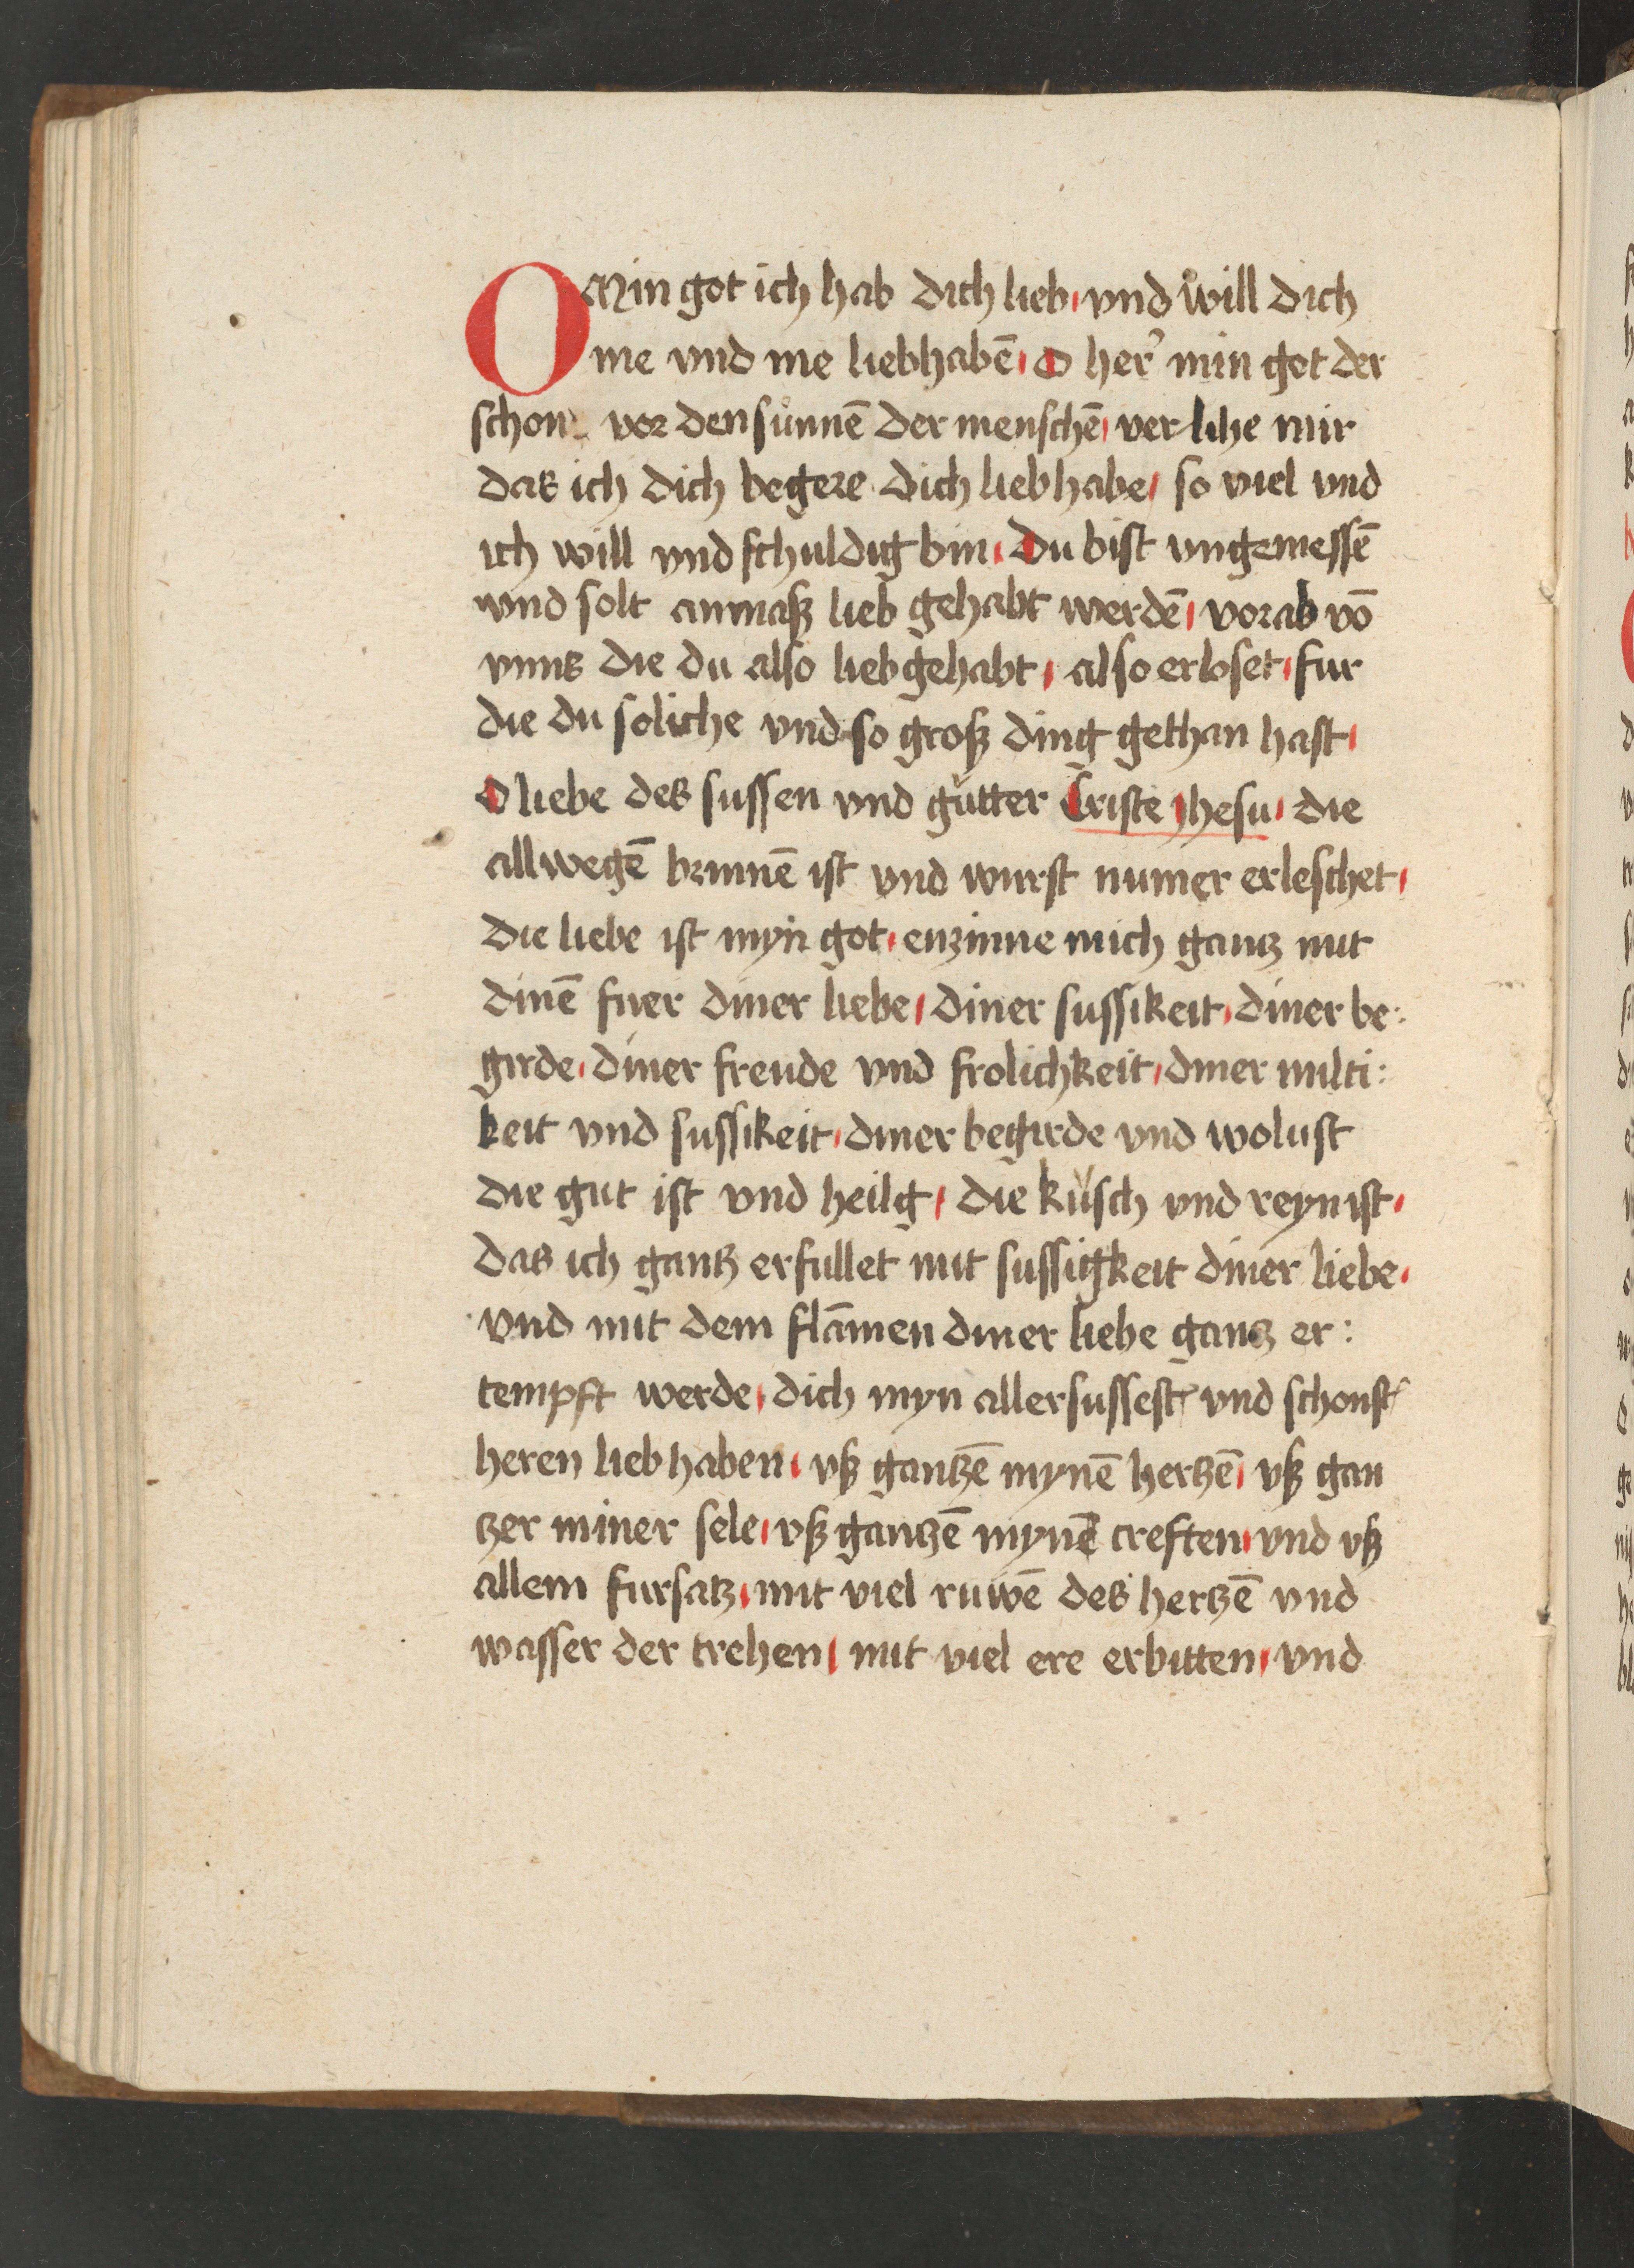 O Min got ich hab dich lieb, vnd wͦill dich
me vnd me liebhabē, O her᾽ min got der
schon vor den suͦnnē der menschē, ver lihe mir
das ich dich begere dich liebhabe, so viel vnd
ich will vnd schuldig bin, Du bist vngemessē
vnd solt anmaß lieb gehabt werdē, vorab vō
vnns die du also liebgehabt, also erloset, fur
die du soliche vnd so groß ding gethan hast,
O liebe des sussen vnd gutter Criste Jhesu, die
allwegē brinnē ist vnd wurst numer erleschet,
die liebe ist myn got, enzinne mich gantz mit
dinē fuer diner liebe, diner sussikeit, diner be:
girde, diner freude vnd frolichkeit, diner milti:
keit vnd sussikeit, diner begirde vnd wolust
die gut ist vnd heilg, die kusch vnd reyn ist,
das ich gantz erfullet mit sussigkeit diner liebe,
vnd mit dem flāmen diner liebe gantz er:
tempft werde, dich myn allersussest vnd schonst
heren liebhaben, vß gantzē mynē hertzē, vß gan
tzer miner sele, vß gantzē mynē creften, vnd vß
allem fursatz, mit viel ruwē des hertzē vnd
wasser der trehen, mit viel ere erbitten, vnd